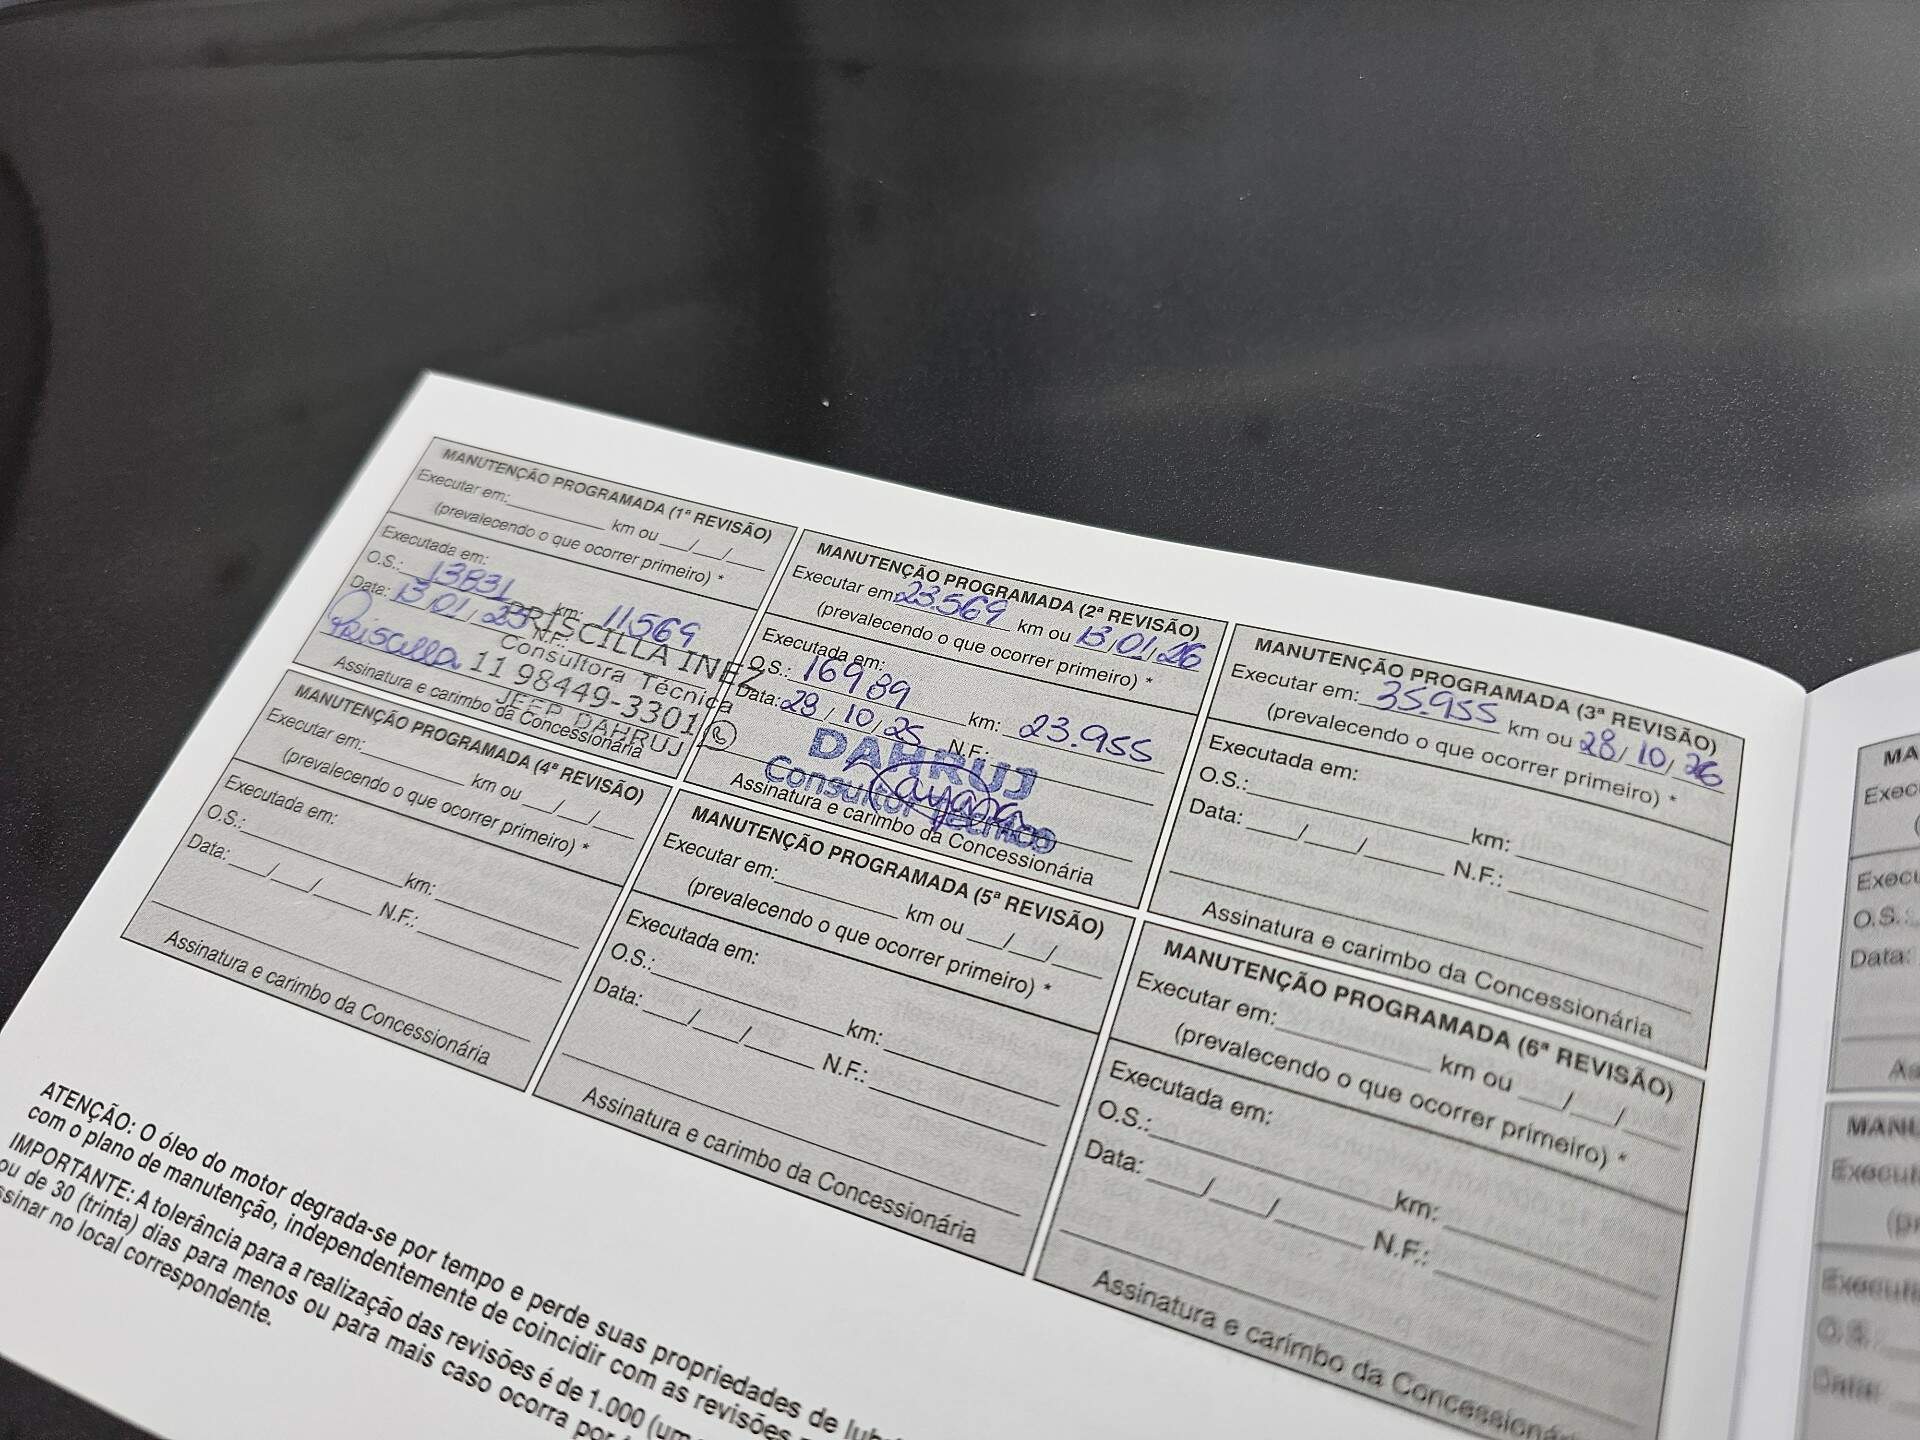 MANUTENÇÃO PROGRAMADA (1ª REVISÃO)
Executar em:________ km ou __/__/__
(prevalecendo o que ocorrer primeiro) *
Executada em:
O.S.: 13831 km: 11.569
Data: 13/01/25 N.F.:
PRISCILLA INEZ
Consultora Técnica
11 98449-3301
JEEP DAHRUJ
Priscilla
Assinatura e carimbo da Concessionária
MANUTENÇÃO PROGRAMADA (2ª REVISÃO)
Executar em: 23.569 km ou 13/01/26
(prevalecendo o que ocorrer primeiro) *
Executada em:
O.S.: 16989 km: 23.955
Data: 28/10/25 N.F.:
DAHRUJ
Consultor Técnico
Assinatura e carimbo da Concessionária
MANUTENÇÃO PROGRAMADA (3ª REVISÃO)
Executar em: 35.955 km ou 28/10/26
(prevalecendo o que ocorrer primeiro) *
Executada em:
O.S.:________ km:________
Data: __/__/__ N.F.:________
Assinatura e carimbo da Concessionária
MANUTENÇÃO PROGRAMADA (4ª REVISÃO)
Executar em:________ km ou __/__/__
(prevalecendo o que ocorrer primeiro) *
Executada em:
O.S.:________ km:________
Data: __/__/__ N.F.:________
Assinatura e carimbo da Concessionária
MANUTENÇÃO PROGRAMADA (5ª REVISÃO)
Executar em:________ km ou __/__/__
(prevalecendo o que ocorrer primeiro) *
Executada em:
O.S.:________ km:________
Data: __/__/__ N.F.:________
Assinatura e carimbo da Concessionária
MANUTENÇÃO PROGRAMADA (6ª REVISÃO)
Executar em:________ km ou __/__/__
(prevalecendo o que ocorrer primeiro) *
Executada em:
O.S.:________ km:________
Data: __/__/__ N.F.:________
Assinatura e carimbo da Concessionária
ATENÇÃO: O óleo do motor degrada-se por tempo e perde suas propriedades de
com o plano de manutenção, independentemente de coincidir com as revisões
IMPORTANTE: A tolerância para a realização das revisões é de 1.000
ou de 30 (trinta) dias para menos ou para mais caso ocorra por
assinar no local correspondente.
O.S.:
Data: